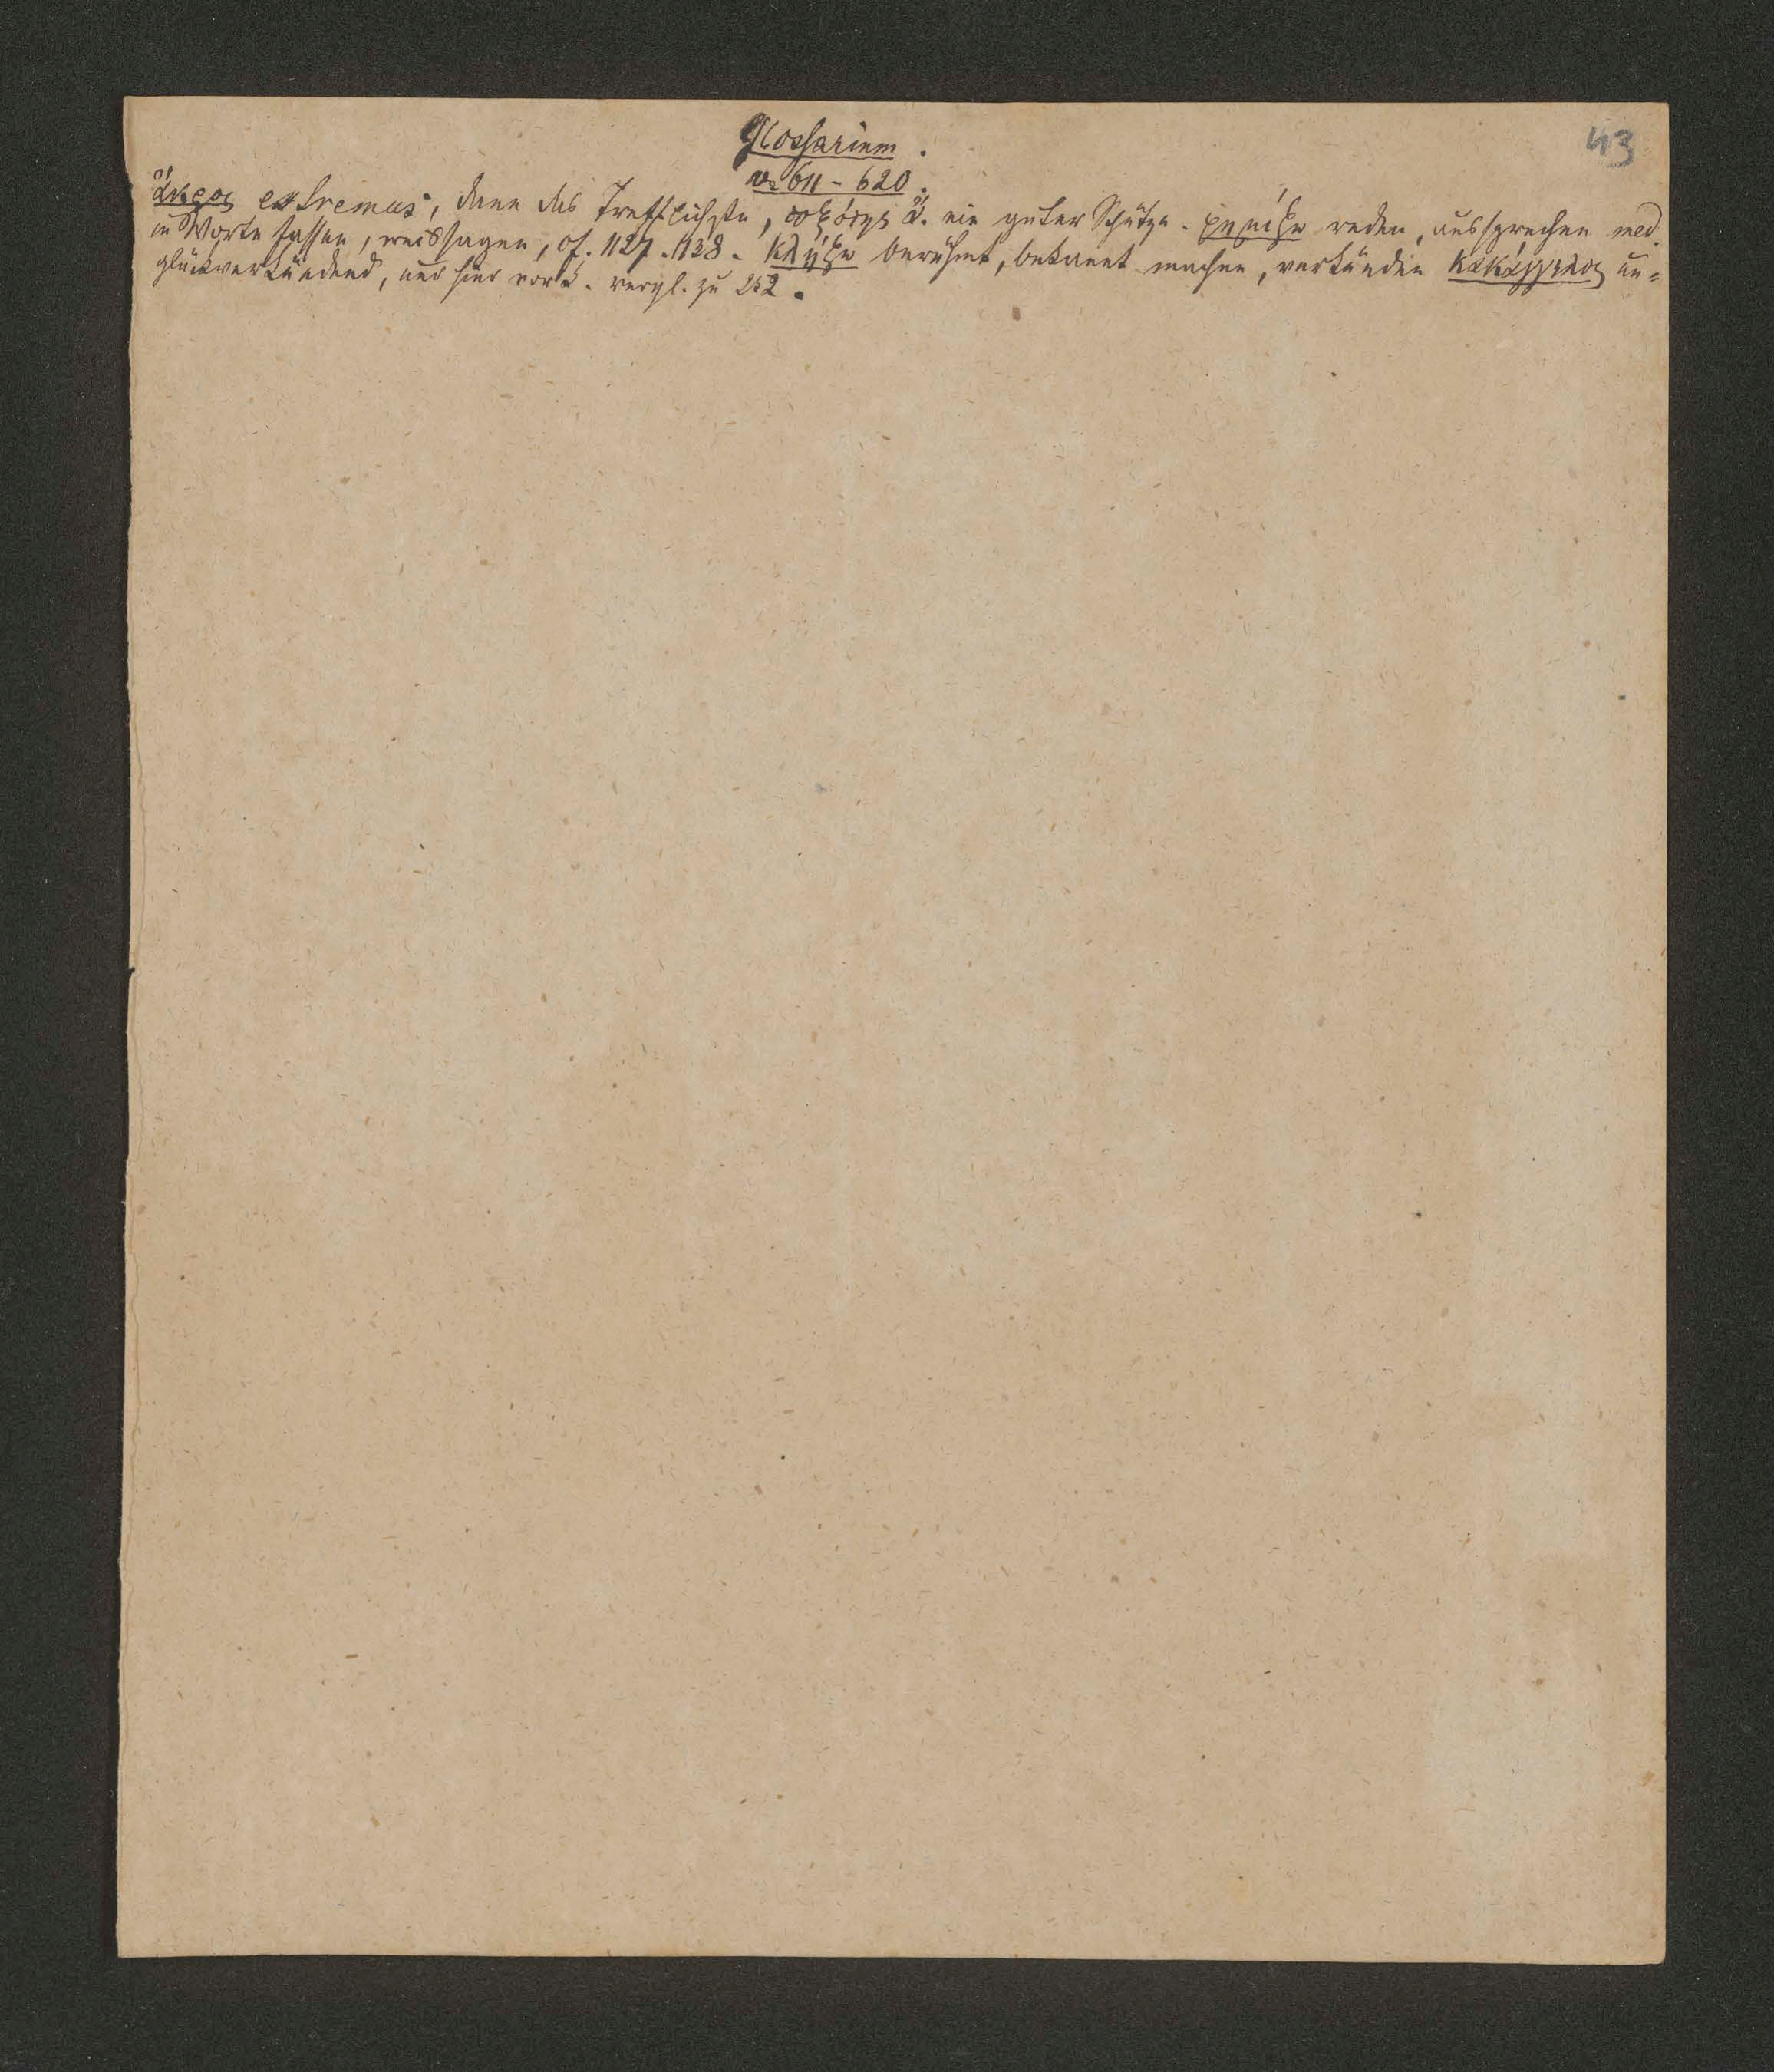 43
Glossarium.
v. 611 – 620.
ἄκρος extremus, dann das Trefflichste, τοξότης ἄ. ein guter Schütze. φημίζω reden, aussprechen med.
in Worte fassen, weissagen, cf. 1127. 1138. κλῄζω berühmt, bekannt machen, verkünden κακάγγελος un=
glückverkündend, nur hier vork. vergl. zu 252.